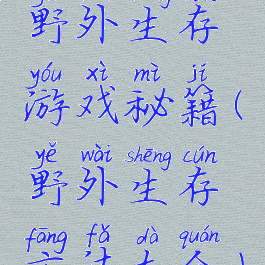 野外生存
yóu xì mì jí
游戏秘籍(
yě wài shēng cún
野外生存
fāng fǎ dà quán